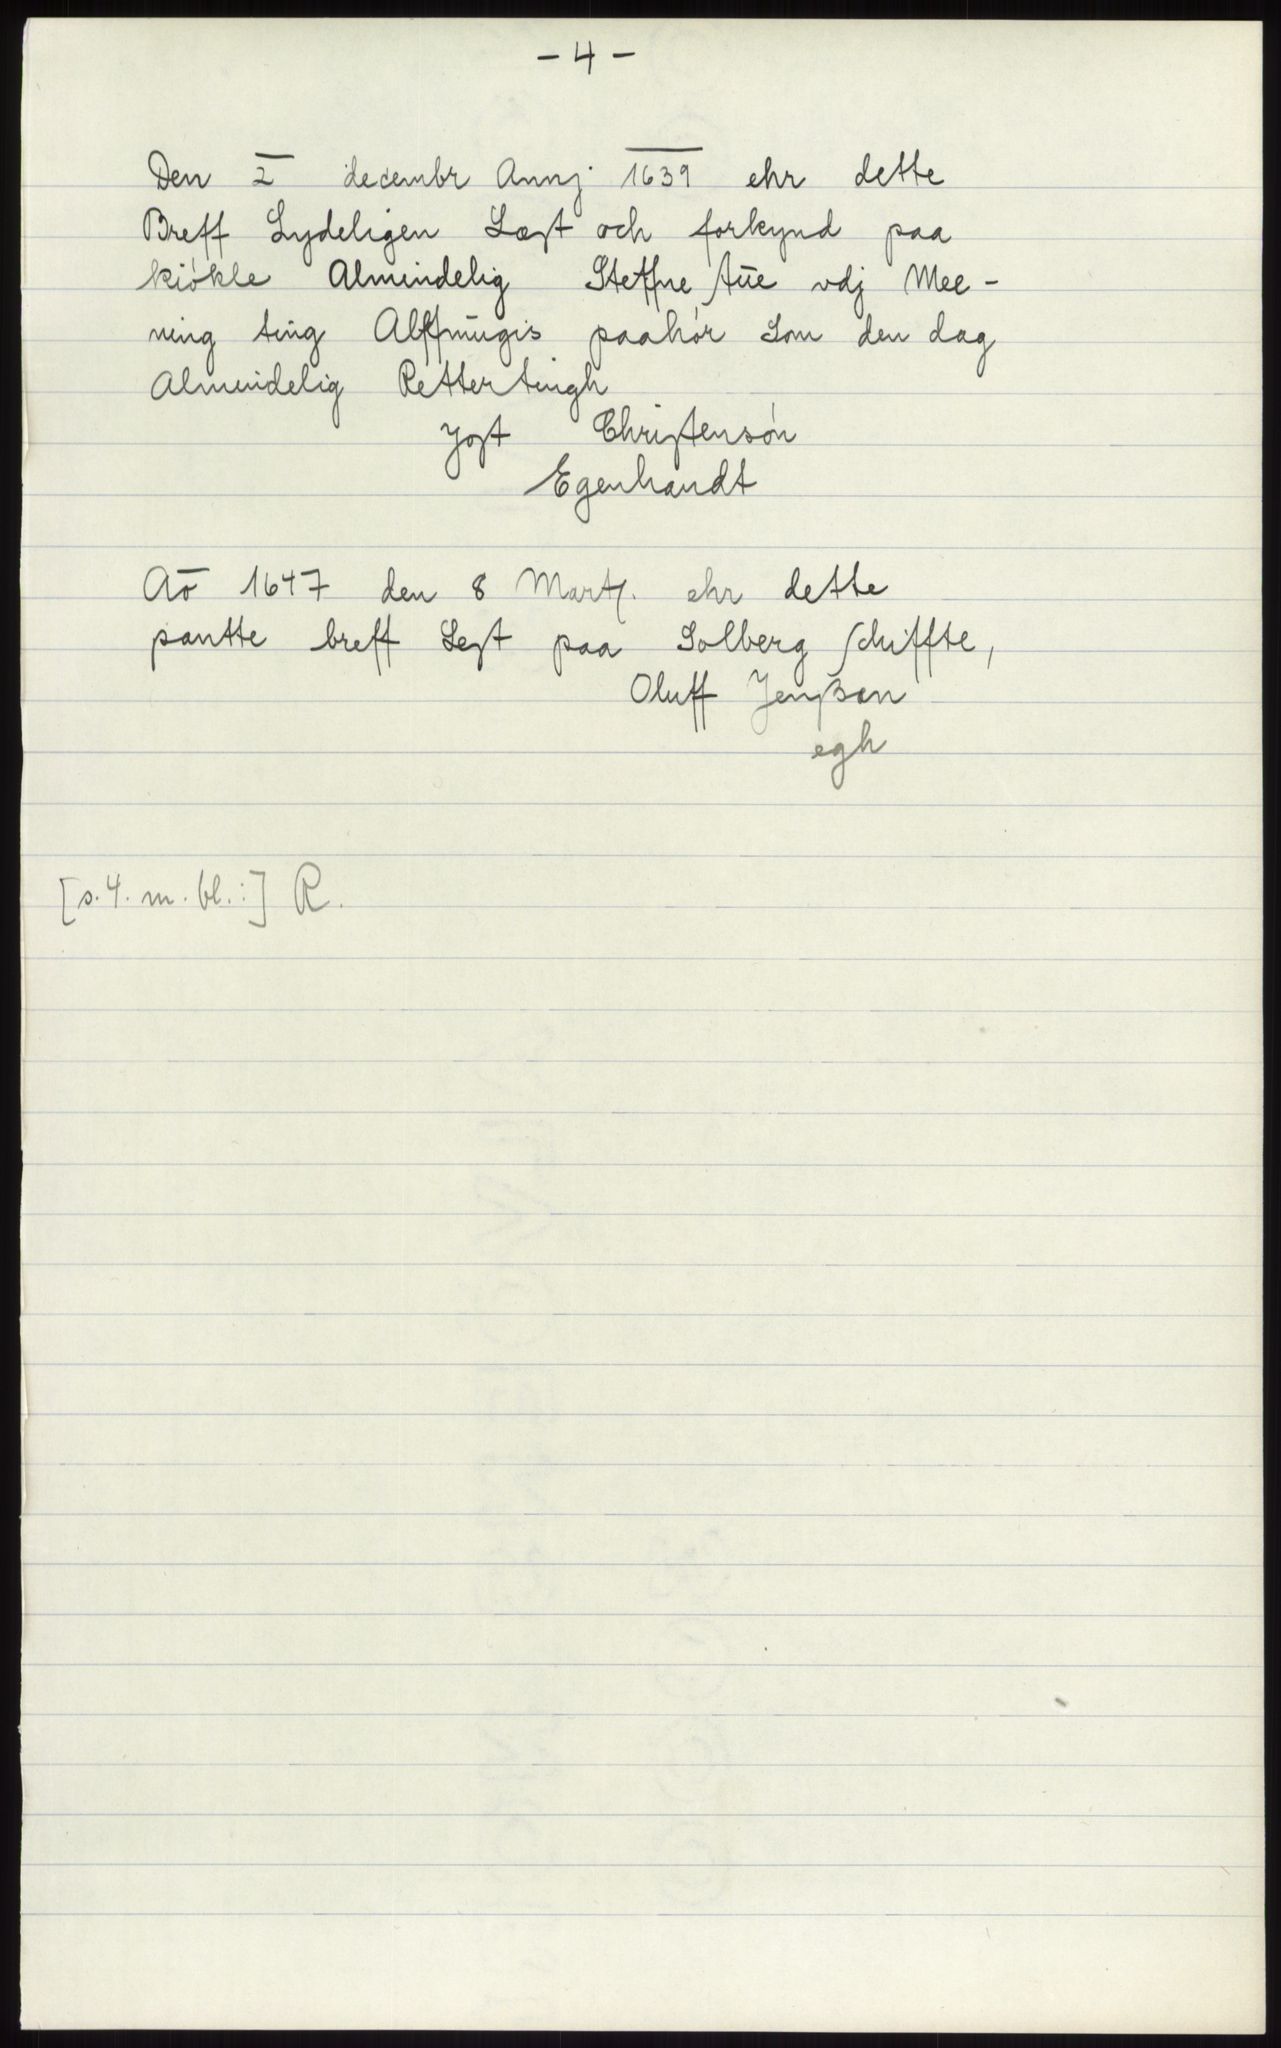 - 4 -
Den 2 decembr Annj 1639 ehr dette
Breff Lydeligen Læst och forkynd paa
kiökle Almindelig Steffne stüe vdj Mee-
ning ting Alffmügis paahör Som den dag
Almindelig Rettertingh
Jost Christensön
Egenhandt
Aō 1647 den 8 Martj. ehr dette
pantte breff Lest paa Solberg schiffte,
Oluff Jenßen
egh
[s. 4. m. bl.:] R.